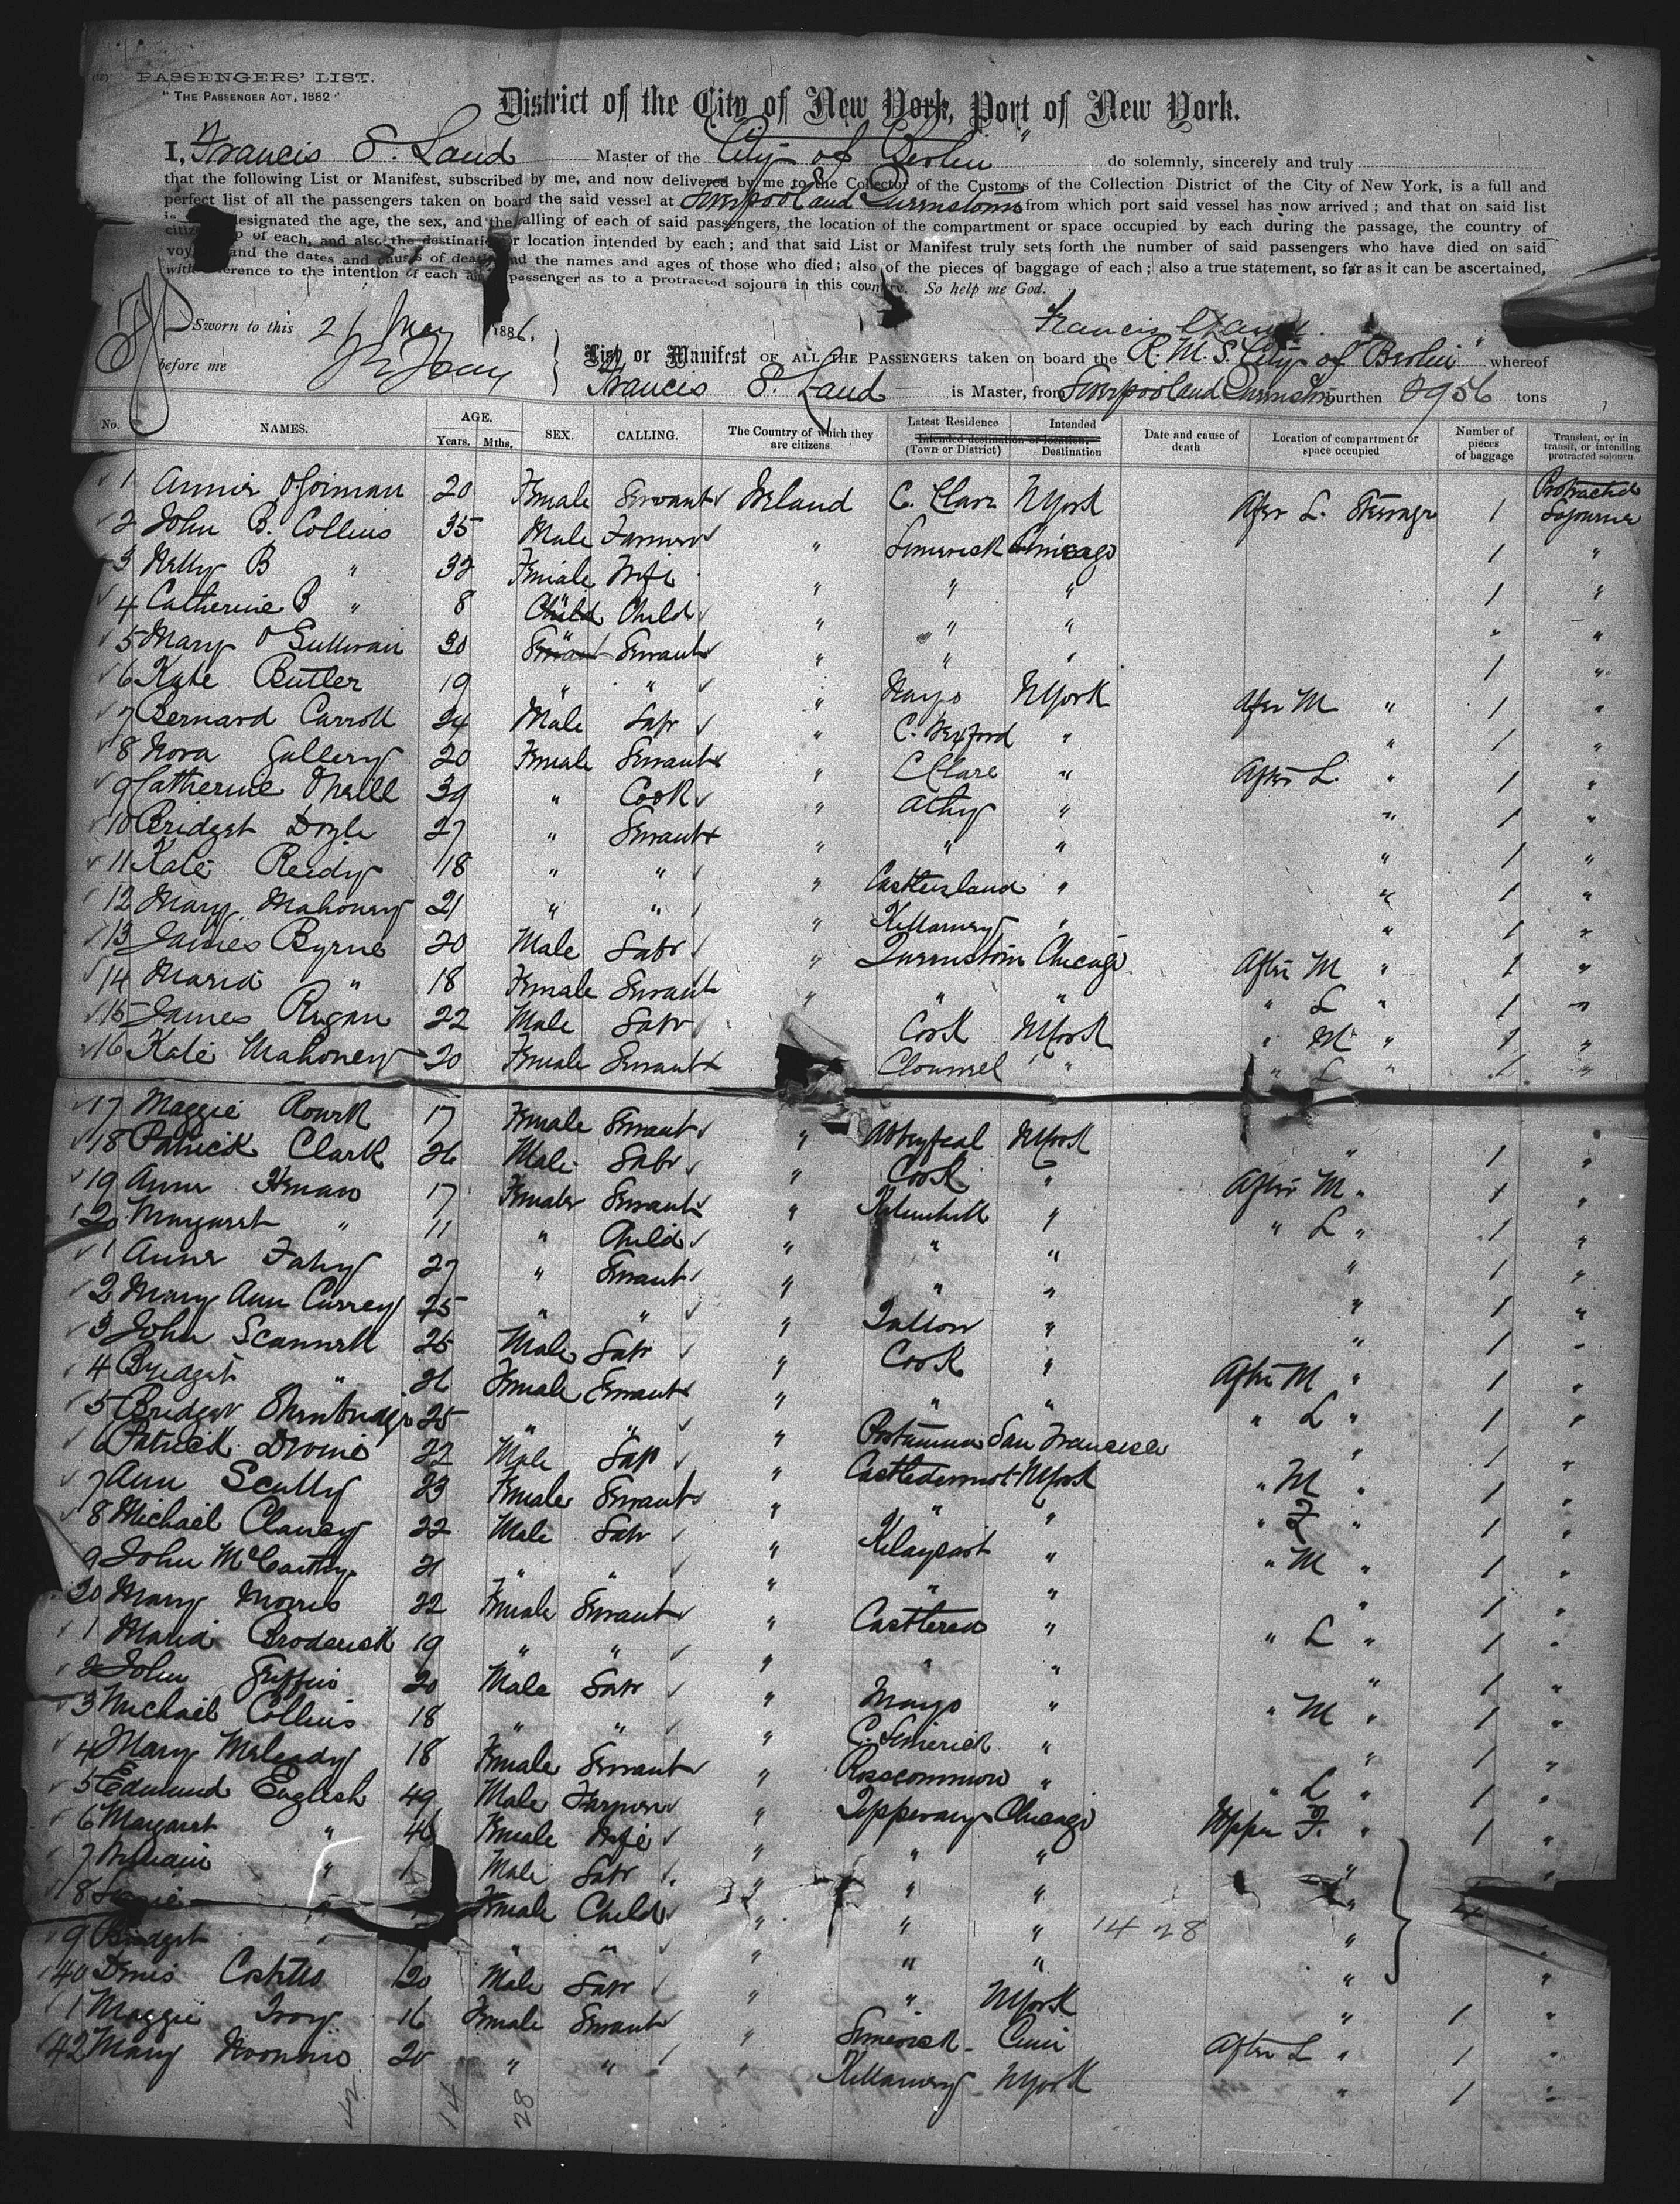 PASSENGERS' LIST.
"THE PASSENGER ACT, 1882"
District of the City of New York, Port of New York.
I, Francis S. Land Master of the City of Berlin" do solemnly, sincerely and truly
that the following List or Manifest, subscribed by me, and now delivered by me to the Collector of the Customs of the Collection District of the City of New York, is a full and
perfect list of all the passengers taken on board the said vessel at Liverpool and Queenstown from which port said vessel has now arrived; and that on said list
designated the age, the sex, and the calling of each of said passengers, the location of the compartment or space occupied by each during the passage, the country of
of each, and also the destination or location intended by each; and that said List or Manifest truly sets forth the number of said passengers who have died on said
and the dates and causes of death and the names and ages of those who died; also of the pieces of baggage of each; also a true statement, so far as it can be ascertained,
with reference to the intention of each passenger as to a protracted sojourn in this country. So help me God.
Sworn to this 21 May 1886. Francis S Land
before me
List or Manifest OF ALL THE PASSENGERS taken on board the R. M. S. City of Berlin" whereof
Francis S. Land is Master, from Liverpool and Queenstown burthen 2956 tons
No. NAMES. AGE. Years. Mths. SEX. CALLING. The Country of which they are citizens. Latest Residence (Town or District) Intended destination or location. Intended Destination Date and cause of death Location of compartment or space occupied Number of pieces of baggage Transient, or in transit, or intending protracted sojourn
1 Annie O'Gorman 20 Female Servant Ireland C. Clare N York After L. Steerage 1 Protracted Sojourner
2 John B. Collins 35 Male Farmer " Limerick Chicago 1 "
3 Nelly B " 32 Female Wife " " " 1 "
4 Catherine B " 8 Child Child " " " " "
5 Mary O'Sullivan 30 Servant Servant " " " 1 "
6 Kate Butler 19 " " " Mayo N York After M " 1 "
7 Bernard Carroll 24 Male Labr " C. Wexford " " 1 "
8 Nora Gallery 20 Female Servant " C Clare " After L. " 1 "
9 Catherine O'Neill 39 " Cook " Athy " " 1 "
10 Bridget Doyle 27 " Servant " " " " 1 "
11 Kate Reidy 18 " " " Castleisland " " 1 "
12 Mary Mahoney 21 " " " Killarney " " 1 "
13 James Byrne 20 Male Labr " Queenstown Chicago After M " 1 "
14 Maria " 18 Female Servant " " " " L " 1 "
15 James Regan 22 Male Labr Cork N York " M " 1 "
16 Kate Mahoney 20 Female Servant Clonmel " " L " 1 "
17 Maggie Rourk 17 Female Servant " Abbeyfeal N York " 1 "
18 Patrick Clark 26 Male Labr " Cork " After M " 1 "
19 Anne 17 Female Servant " " " L " 1 "
20 Margaret " 11 " Child " " " " 1 "
1 Anne Fahy 27 " Servant " " " " 1 "
2 Mary Ann Currey 25 " " " Tallow " " 1 "
3 John Scannell 25 Male Labr " Cork " After M " 1 "
4 Bridget " 26 Female Servant " " " " L " 1 "
5 Bridget 25 " " " Portumna San Francisco " 1 "
6 Patrick 22 Male Labr " Castledermot N York " M " 1 "
7 Ann Scully 23 Female Servant " " " " L " 1 "
8 Michael Clancy 22 Male Labr " " " M " 1 "
9 John McCarthy 21 " " " " " " 1 "
30 Mary Morris 22 Female Servant " Castlerea " " L " 1 "
1 Maria Broderick 19 " " " " " " 1 "
2 John Griffin 20 Male Labr " Mayo " " M " 1 "
3 Michael Collins 18 " " " C. Limerick " " 1 "
4 Mary Meleady 18 Female Servant " Roscommon " " L " 1 "
5 Edmund English 49 Male Farmer " Tipperary Chicago Upper F. " 1 "
6 Margaret " 46 Female Wife " " " " "
7 William " Male Labr " " " " "
8 " Female Child " " " " 4 "
9 Bridget " " " " " " " "
40 Denis Costello 20 Male Labr " " N York " 1 "
1 Maggie Troy 16 Female Servant " Limerick Cinn After L " 1 "
42 Mary Noonan 20 " " " Killarney N York " 1 "
14 28
42 14 28